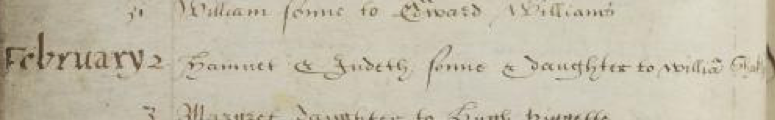 31 William sonne to Edward Williams
February 2 Hamnet & Judeth sonne & daughter to Willia Shak
3 Margret daughter to Hugh